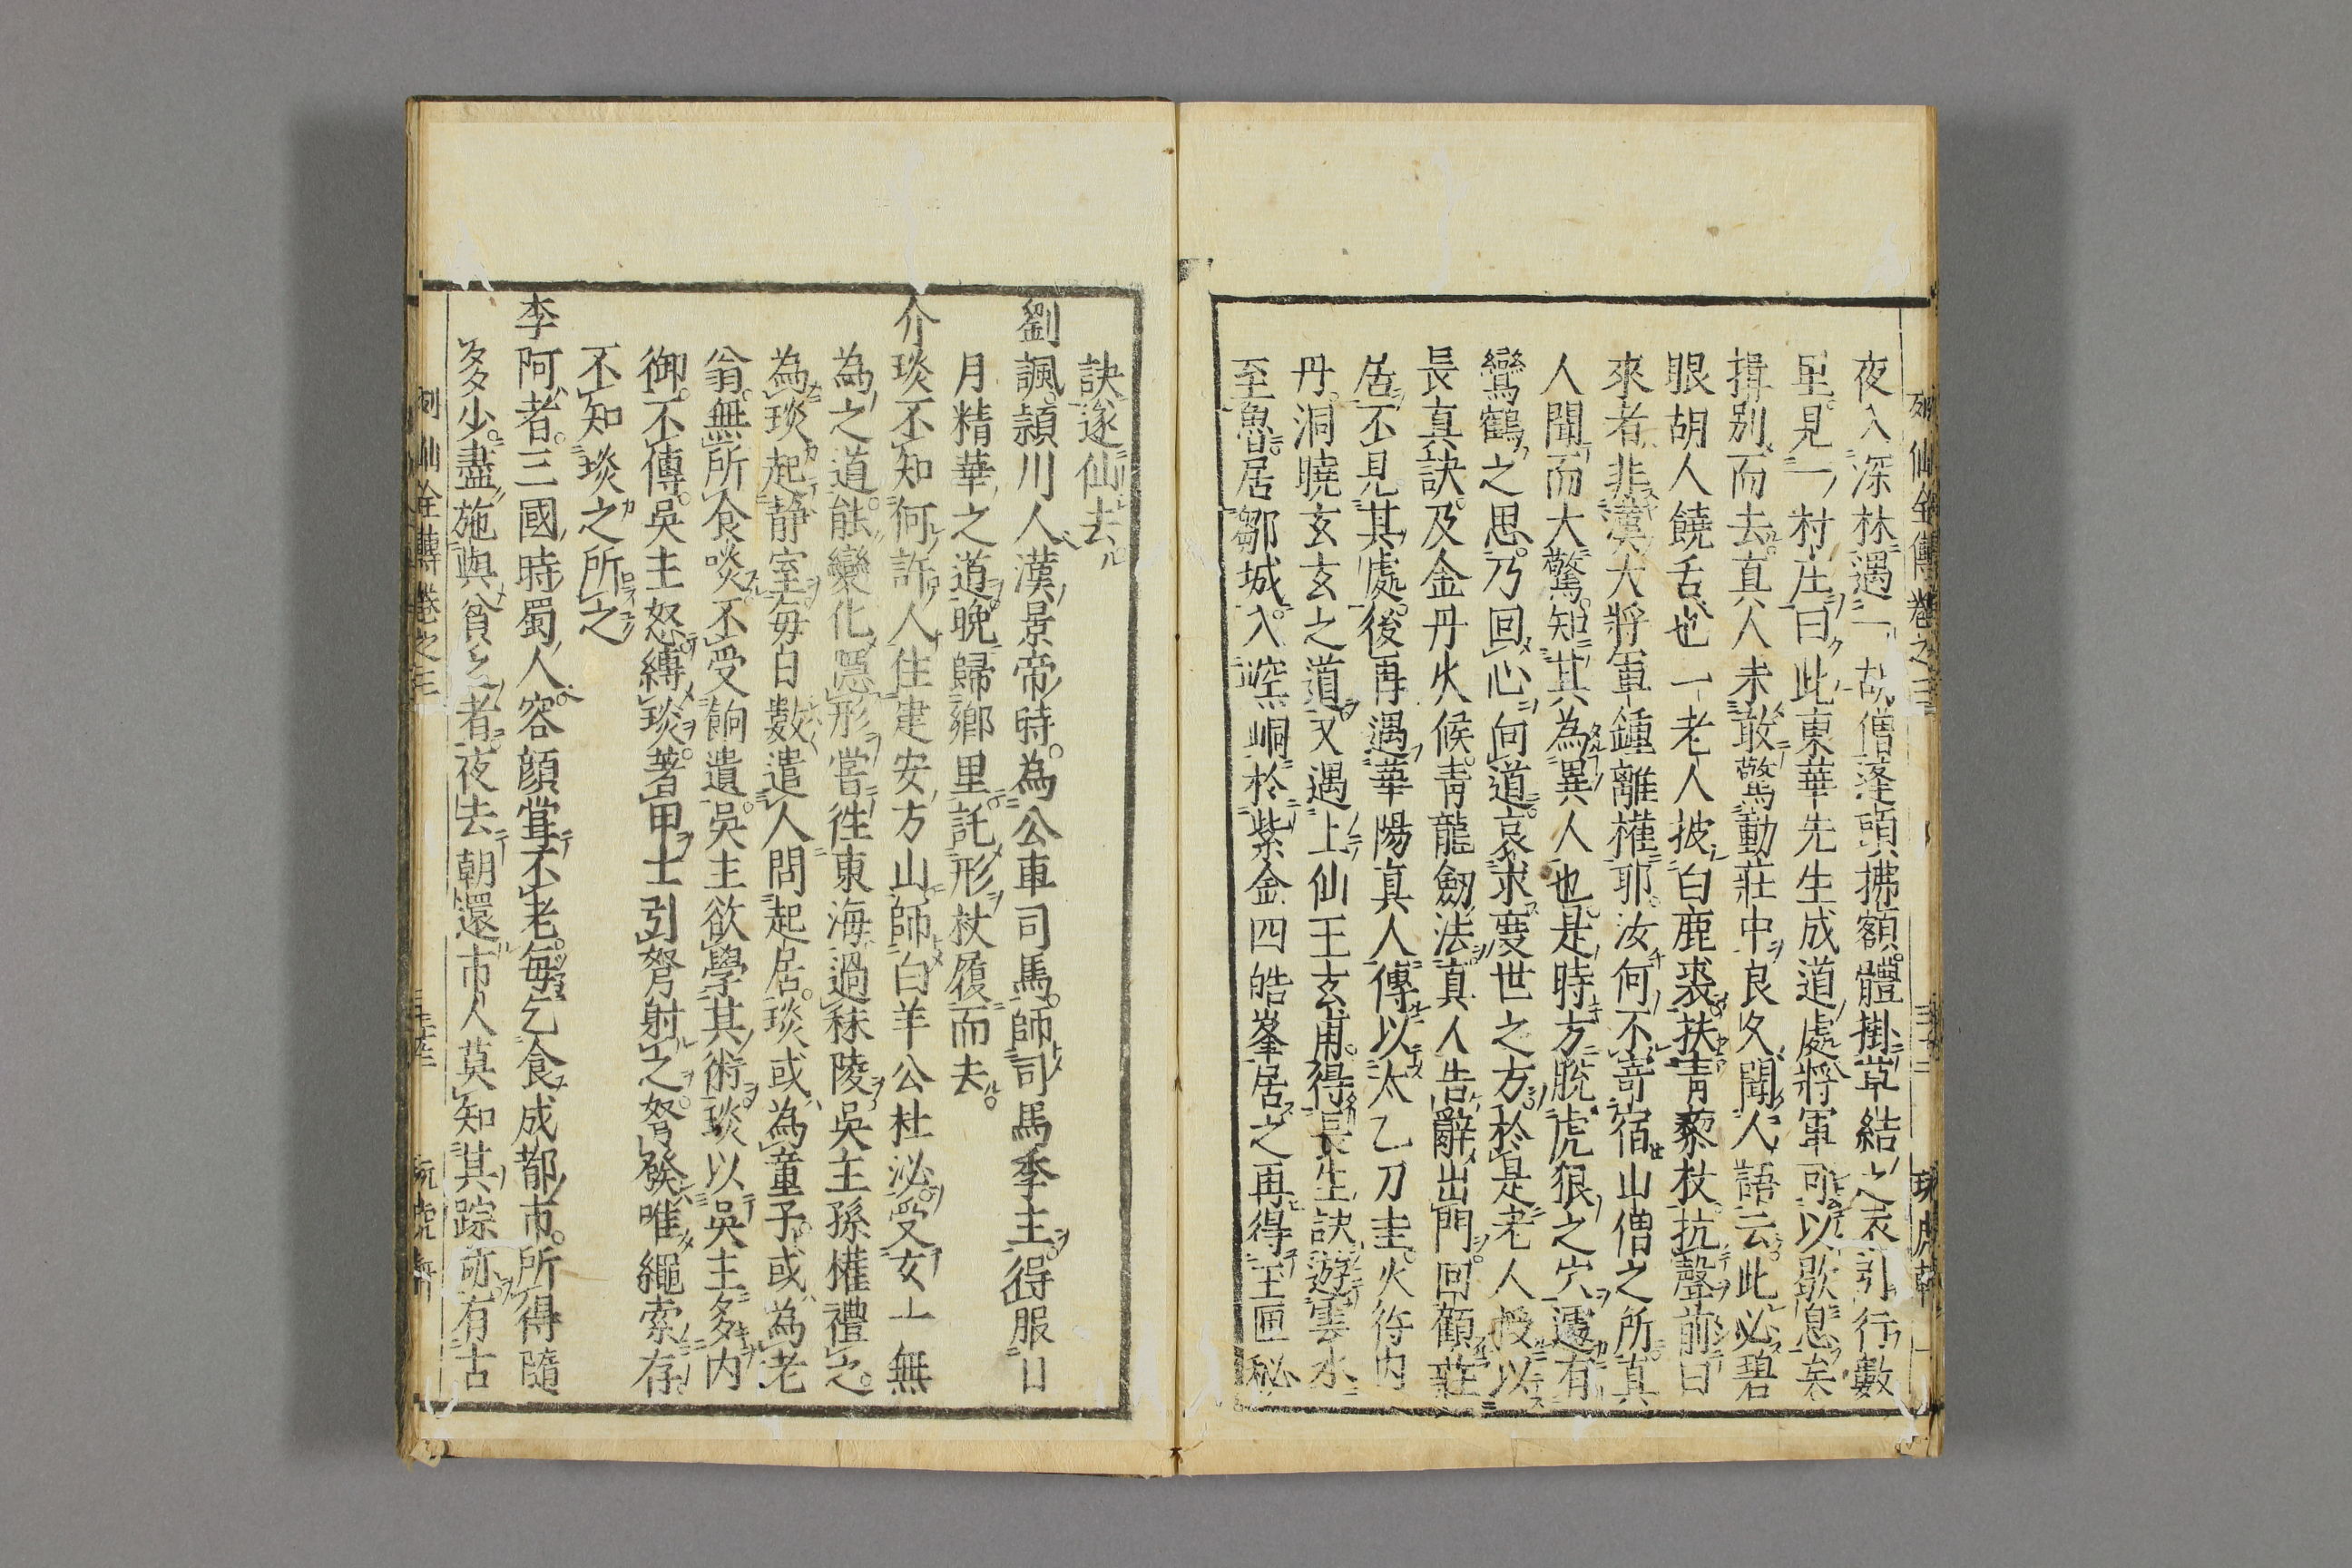 列仙全傳卷之三
夜入深林遇一胡僧蓬頭拂額體掛草結之衣引行數
里見一村庄曰此東華先生成道處將軍可以歇息矣
揖别而去真人未敢驚動莊中良久聞人語云此必碧
眼胡人饒舌也一老人披白鹿裘扶青藜杖抗聲前曰
來者非漢大將軍鍾離權耶汝何不寄宿山僧之所真
人聞而大驚知其為異人也是時方脫虎狼之穴遽有
鸞鶴之思乃回心向道哀求度世之方於是老人授以
長真訣及金丹火候青龍劒法真人告辭出門回顧莊
居不見其處後再遇華陽真人傳以太乙刀圭火符內
丹洞曉玄玄之道又遇上仙王玄甫得長生訣遊雲水
至魯居鄒城入崆峒於紫金四皓峯居之再得玉匣秘
訣遂仙去
劉諷頴川人漢景帝時為公車司馬師司馬季主得服日
月精華之道晚歸鄉里託形杖履而去
介琰不知何許人住建安方山師白羊公杜泌受玄一無
為之道能變化隱形嘗徃東海過秣陵吳主孫權禮之
為琰起静室每日數遣人問起居琰或為童子或為老
翁無所食啖不受餉遺吳主欲學其術琰以吳主多内
御不傳吳主怒縛琰著甲士引弩射之弩發唯繩索存
不知琰之所之
李阿者三國時蜀人容顔甞不老每乞食成都市所得隨
多少盡施與貧乏者夜去朝還市人莫知其踪亦有古
列仙全傳卷之三
玩虎軒